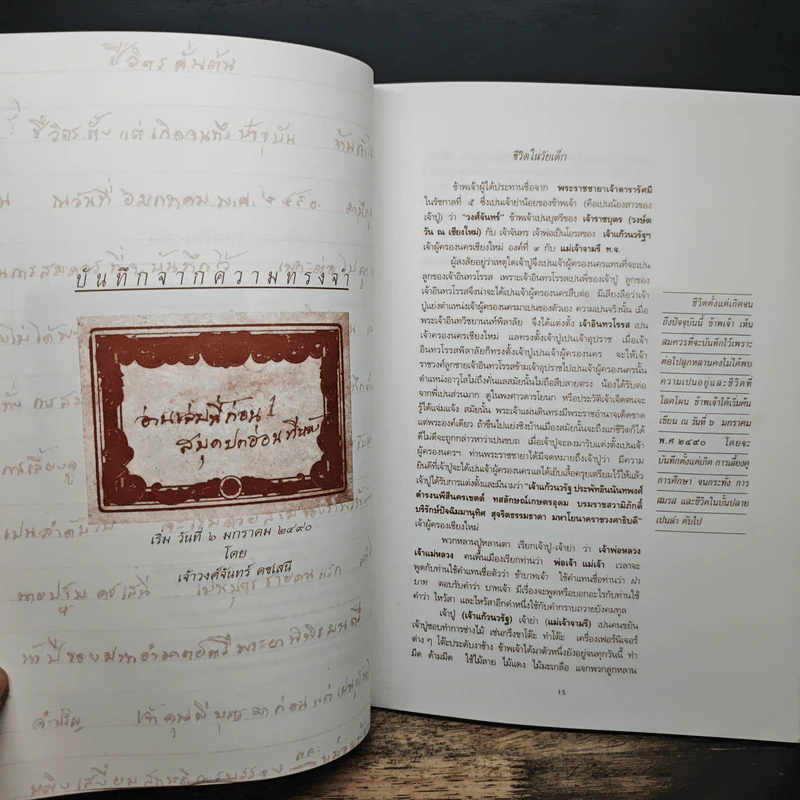 ชีวิตรคั่นต้น
ชีวิตรตั้งแต่เกิดจนถึงปัจจุบัน
ณวันที่ ๖มกราคม พ.ศ. ๒๔๙๐.
บันทึกจากความทรงจำ
อ่านเล่มนี้ก่อน
สมุดปกอ่อนทีหลัง
เริ่ม วันที่ ๖ มกราคม ๒๔๙๐
โดย
เจ้าวงศ์จันทร์ คชเสนี
การเลี้ยงดู
เปนลำดับ
นายปฐม คชเสนี
ชีวิตในวัยเด็ก
ข้าพเจ้าผู้ได้ประทานชื่อจาก พระราชชายาเจ้าดารารัศมี
ในรัชกาลที่ ๕ ซึ่งเปนเจ้าย่าน้อยของข้าพเจ้า (คือเปนน้องสาวของ
เจ้าปู่) ว่า "วงศ์จันทร์" ข้าพเจ้าเปนบุตรีของ เจ้าราชบุตร (วงษ์ต
วัน ณ เชียงใหม่) กับ เจ้าจันทร เจ้าพ่อเป็นโอรสของ เจ้าแก้วนวรัฐฯ
เจ้าผู้ครองนครเชียงใหม่ องค์ที่ ๙ กับ แม่เจ้าจามรี ท.จ.
ผู้สงสัยอยู่ว่าเหตุใดเจ้าปู่จึงเปนเจ้าผู้ครองนครแทนที่จะเปน
ลูกของเจ้าอินทวโรรส เพราะเจ้าอินทวโรรสเปนพี่ของเจ้าปู่ ลูกของ
เจ้าอินทวโรรสจึงน่าจะได้เปนเจ้าผู้ครองนครสืบต่อ มีเสียงลือว่าเจ้า
ปู่แย่งตำแหน่งเจ้าผู้ครองนครมาเปนของตัวเอง ความเปนจริงนั้น เมื่อ
พระเจ้าอินทวิชยานนท์พิลาลัย จึงได้แต่งตั้ง เจ้าอินทวโรรส เปน
เจ้าครองนครเชียงใหม่ แลทรงตั้งเจ้าปู่เปนเจ้าอุปราช เมื่อเจ้า
อินทวโรรสพิลาลัยก็ทรงตั้งเจ้าปู่เปนเจ้าผู้ครองนคร จะให้เจ้า
ราชวงศ์ลูกชายเจ้าอินทวโรรสข้ามเจ้าอุปราชไปเปนเจ้าผู้ครองนครนั้น
ตำแหน่งอาวุโสไม่ถึงคืนแลสมัยนั้นไม่ถือสืบสายตรง น้องได้รับช่วงต่อ
จากพี่เปนส่วนมาก ดูในพงศาวดารโยนก หรือประวัติเจ้าเจ็ดตนจะ
รู้ได้แจ่มแจ้ง สมัยนั้น พระเจ้าแผ่นดินทรงมีพระราชอำนาจเด็ดขาด
แต่พระองค์เดียว ถ้าปืนไปแย่งชิงบ้านเมืองสมัยนั้นจะถึงแก่ชีวิตก็ได้
ดีไม่ดีจะถูกกล่าวหาว่าเปนขบถ เมื่อเจ้าปู่จะลงมารับแต่งตั้งเปนเจ้า
ผู้ครองนครฯ ท่านพระราชชายาได้มีจดหมายถึงเจ้าปู่ว่า มีความ
ยินดีที่เจ้าปู่จะได้เปนเจ้าผู้ครองนครแลได้เย็บเสื้อครุยเตรียมไว้ให้แล้ว
เจ้าปู่ได้รับการแต่งตั้งแลมีนามว่า "เจ้าแก้วนวรัฐ ประพัทธอินนันทพงศ์
ดำรงนพีสีนครเขตต์ ทสลักษณ์เกษตรอุดม บรมราชสวามิภักดิ์
บริรักษ์ปัจฉิมมานุทิศ สุจริตธรรมธาดา มหาโยนาคราชวงศาธิบดี"
เจ้าผู้ครองเชียงใหม่
พวกหลานปู่หลานตา เรียกเจ้าปู่-เจ้าย่า ว่า เจ้าพ่อหลวง
เจ้าแม่หลวง คนพื้นเมืองเรียกท่านว่า พ่อเจ้า แม่เจ้า เวลาจะ
พูดกับท่านใช้คำแทนชื่อตัวว่า ข้าบาทเจ้า ใช้คำแทนชื่อท่านว่า ฝ่า
บาท ตอบรับคำว่า บาทเจ้า มีเรื่องจะพูดหรือบอกอะไรกับท่านใช้
คำว่า ไหว้สา แลไหว้สาอีกคำหนึ่งใช้กับคำกราบถวายบังคมทูล
เจ้าปู่ (เจ้าแก้วนวรัฐ) เจ้าย่า (แม่เจ้าจามรี) เปนคนขยัน
เจ้าปู่ชอบทำการช่างไม้ เช่นกรึงชาโต๊ะ ทำโต๊ะ เครื่องเฟอร์นิเจอร์
ต่าง ๆ โต๊ะประดับงาช้าง ข้าพเจ้าได้มาตัวหนึ่งยังอยู่จนทุกวันนี้ ทำ
มีด ด้ามมีด ใช้ไม้ลาย ไม้แดง ไม้มะเกลือ แจกพวกลูกหลาน
ชีวิตตั้งแต่เกิดจน
ถึงปัจจุบันนี้ ข้าพเจ้า เห็น
สมควรที่จะบันทึกไว้เพราะ
ต่อไปลูกหลานคงไม่ได้พบ
ความเปนอยู่และชีวิตที่
โลดโผน ข้าพเจ้าได้เริ่มต้น
เขียน ณ วันที่ ๖ มกราคม
พ.ศ ๒๔๙๐ โดยจะ
บันทึกตั้งแต่เกิด การเลี้ยงดู
การศึกษา จนกระทั่ง การ
สมรส และชีวิตในบั้นปลาย
เปนลำ ดับไป
15